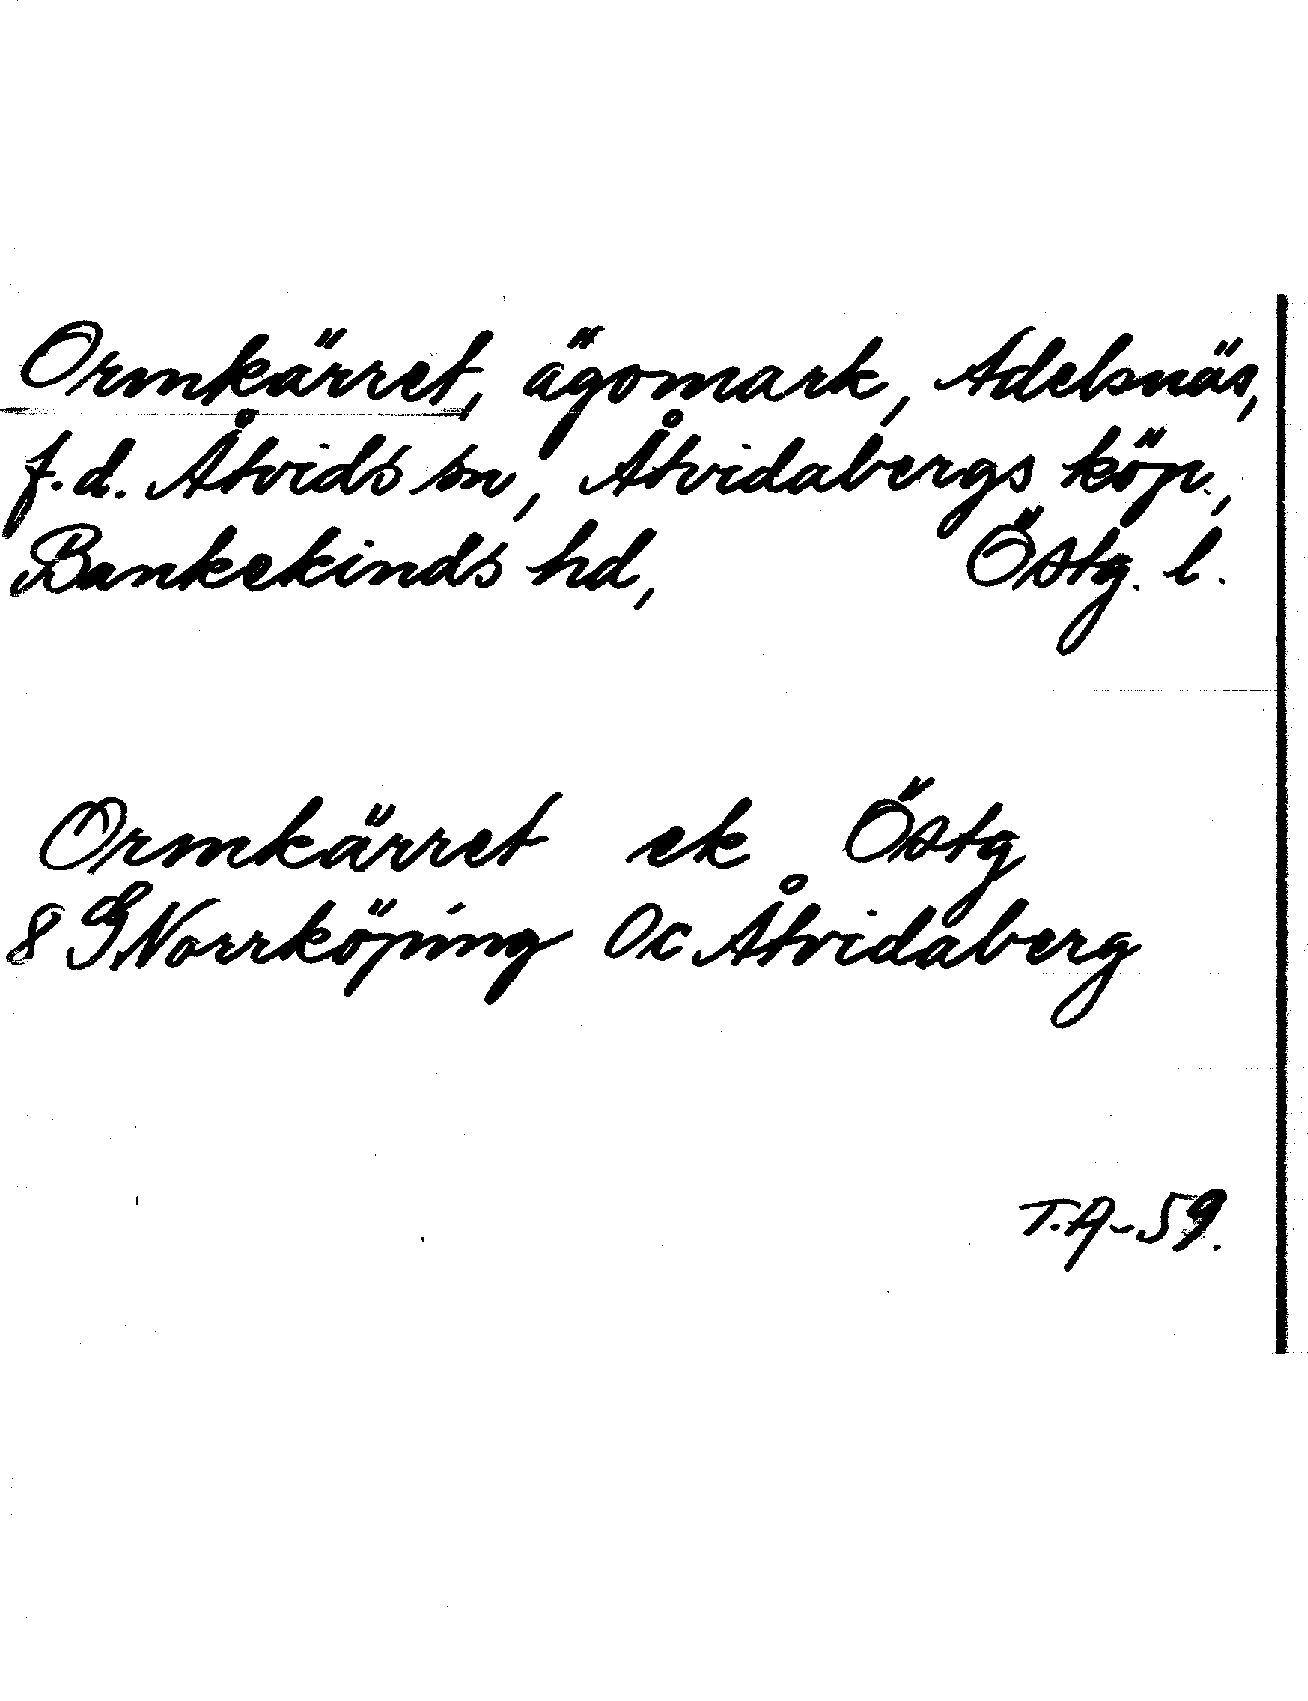 Ormkärret, ägomark, Adelsnäs,
f.d. Åtvids sn, Åtvidabergs köp.,
Bankekinds hd, Östg. l.
Ormkärret ek Östg
8 G Norrköping 0c Åtvidaberg
T.A-59.